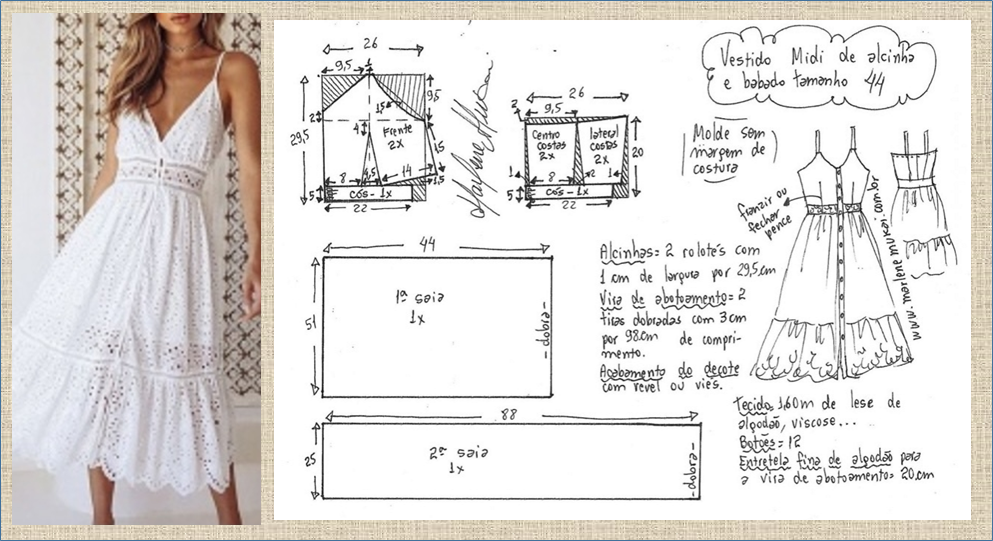 Vestido Midi de alcinha
e babado tamanho 44
26
9,5
1
2
29,5
9,5
1,5
4
Frente
2x
15
8
4,5
14
1,5
5
cós - 1x
22
26
2
9,5
Centro
costas
2x
lateral
costas
2x
20
1
8
2
1
5
cós - 1x
22
Molde sem
margem de
costura
franzir ou
fechar
pence
www.marlenemukai.com.br
44
51
1ª saia
1x
- dobra -
88
25
2ª saia
1x
- dobra -
Alcinhas= 2 rolotés com
1 cm de largura por 29,5cm
Vira de abotoamento= 2
tiras dobradas com 3cm
por 98cm de compri-
mento.
Acabamento do decote
com revel ou viés.
Tecido 1,60m de lese de
algodão, viscose...
Botões= 12
Entretela fina de algodão para
a vira de abotoamento= 20cm